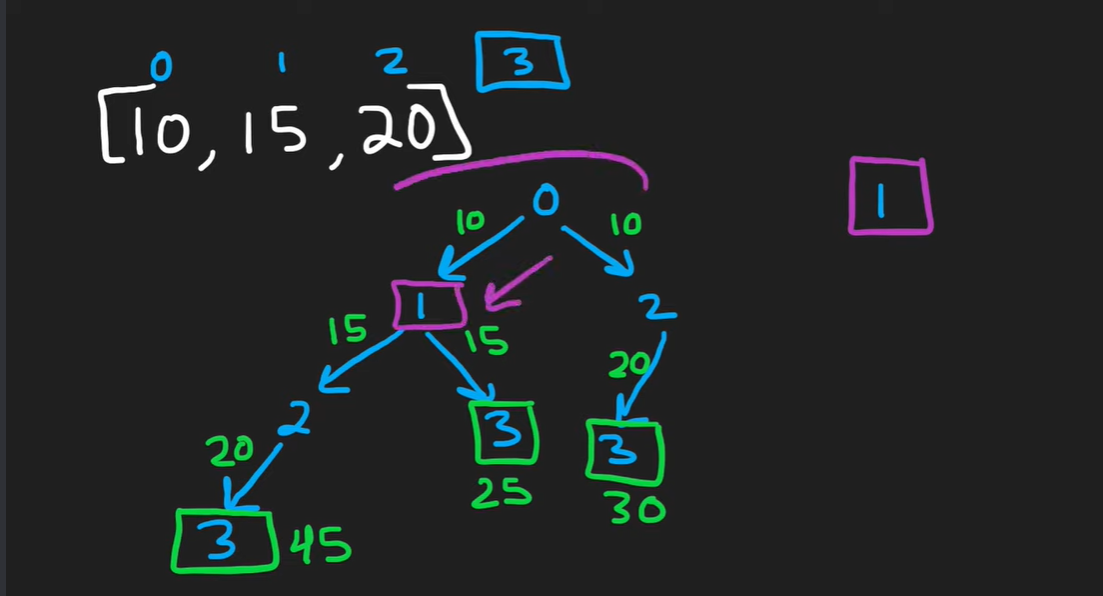 0 1 2 3
[10, 15, 20]
0
1
10 10
1
2
15 15
20
2
3
3
20
25
30
3 45